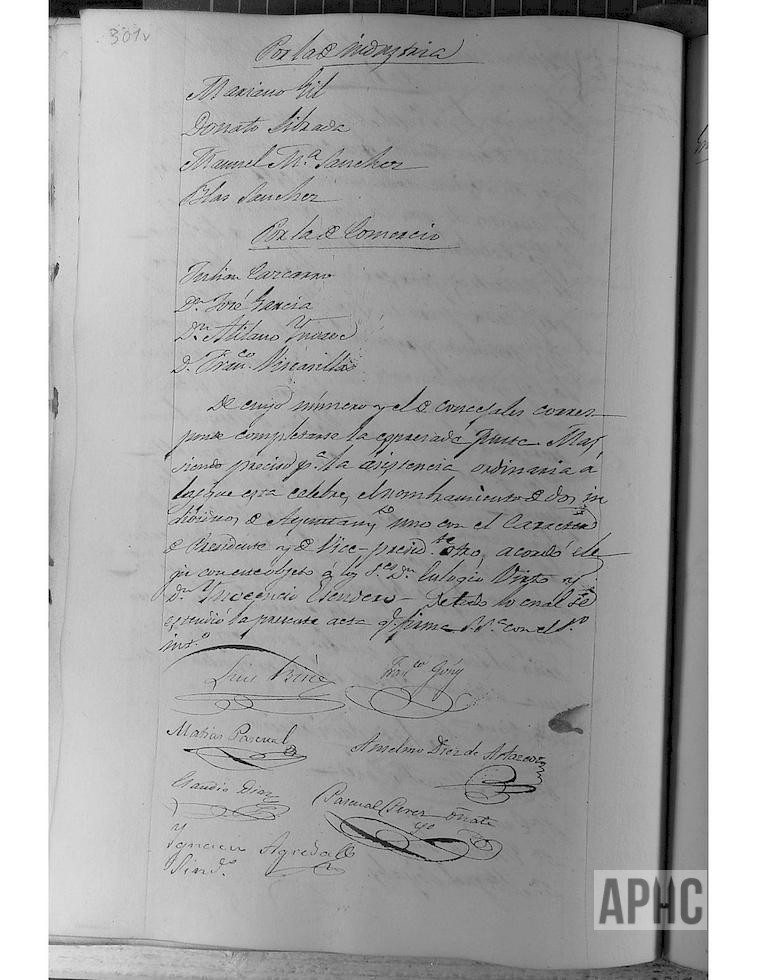 301v
Por la de industria
Mariano Gil
Donato Librada
Manuel Mª Sanchez
Blas Sanchez
Por la de Comercio
Julian Carcamo
Dn. José Garcia
Dn. Atilano
D. Franco.
De cuyo número y el de concejales corres
ponde completarse la espresada Junta. Mas
siendo preciso pª. la asistencia ordinaria á
las que esta celebre, el nombramiento de dos in
dividuos de Ayuntamto. uno con el caracter
de Presidente y de Vice-presidte. otro, acordó ele
jir con este objeto á los Ses. Dn. Eulogio y
Dn. Inocencio Escudero. De todo lo cual se
estendió la presente acta q. firma S.Sª. con el Sº.
intº.
Luis
Franco. Goñy
Matias Pascual
Anselmo Diez de
Claudio Diaz
Pascual Perez Oñate
y
Ignacio Agreda
Sindº.
APHC